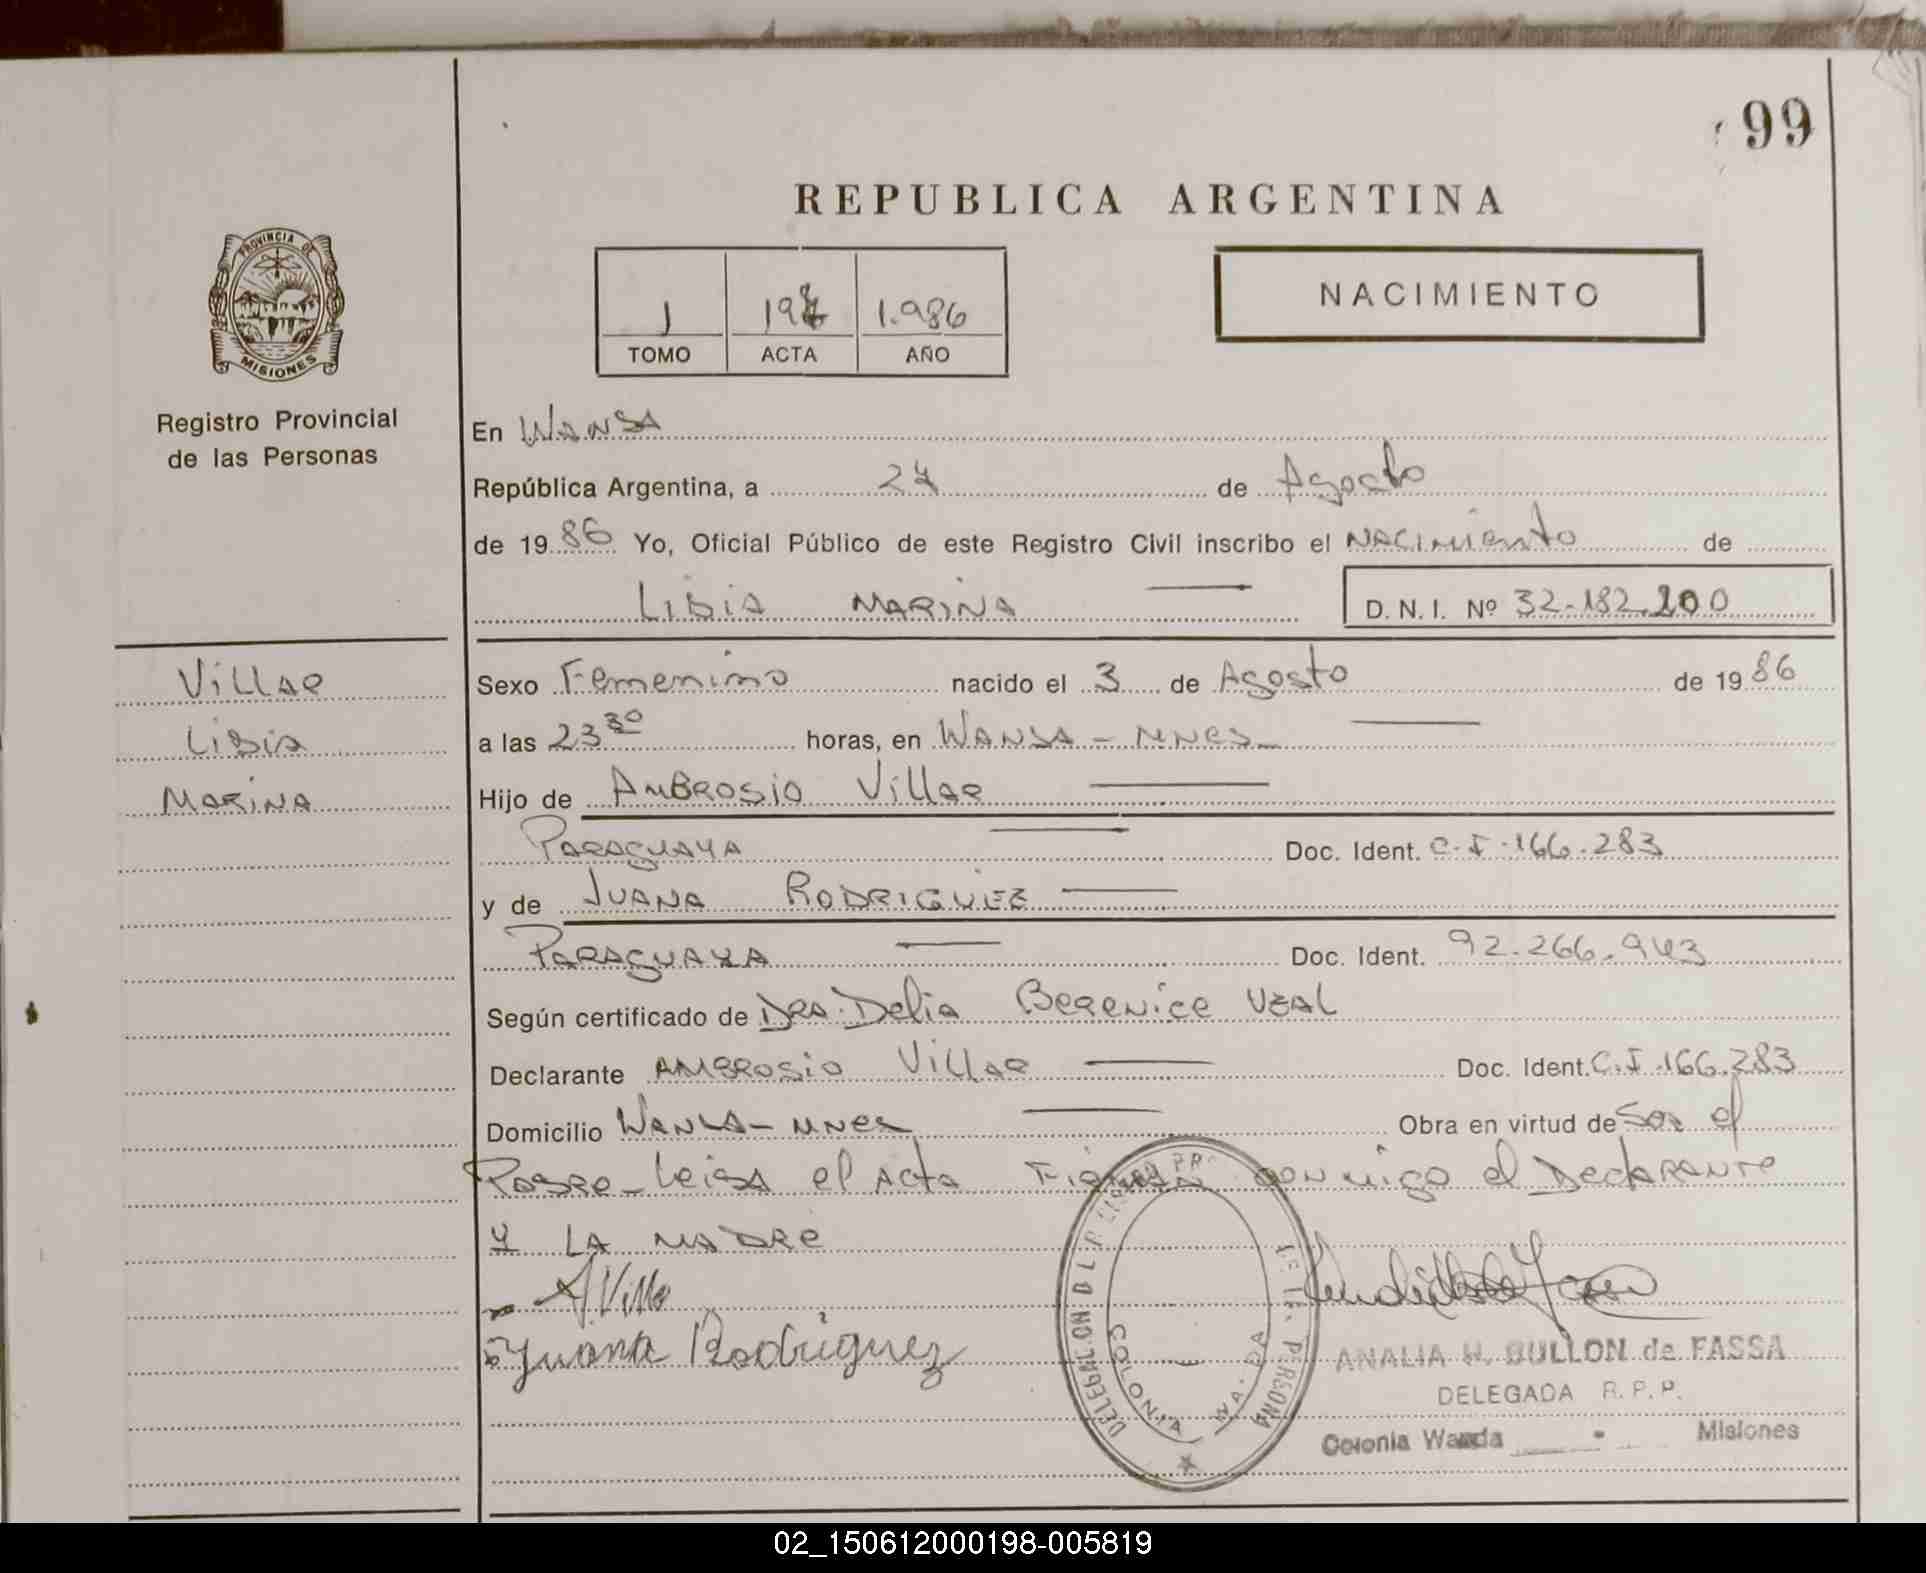 99
REPUBLICA ARGENTINA
PROVINCIA DE
MISIONES
Registro Provincial
de las Personas
1 1.986
TOMO ACTA AÑO
NACIMIENTO
En Wanda
República Argentina, a 27 de Agosto
de 1986 Yo, Oficial Público de este Registro Civil inscribo el Nacimiento de
Libia Marina D. N. I. Nº 32-182.200
Villar
Libia
Marina
Sexo Femenino nacido el 3 de Agosto de 1986
a las 23 30 horas, en Wanda - Mnes
Hijo de Ambrosio Villar
Paraguaya Doc. Ident. C.I.166.283
y de Juana Rodriguez
Paraguaya Doc. Ident. 92.266.943
Según certificado de Dra. Delia Berenice Vzal
Declarante Ambrosio Villar Doc. Ident. C.I.166.283
Domicilio Wanda - Mnes Obra en virtud de Ser el
Padre - Leida el Acta Firman conmigo el Declarante
y la Madre
A Villa
Juana Rodriguez
COLONIA WANDA
ANALIA H. BULLON de FASSA
DELEGADA R. P. P.
Colonia Wanda - Misiones
02_150612000198-005819